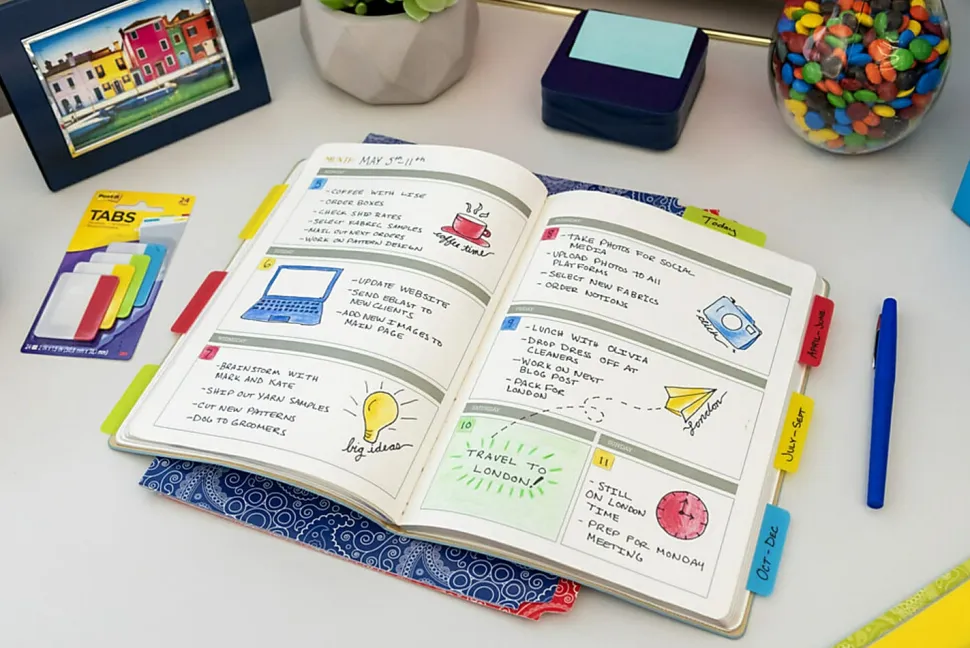 Post-it
24
TABS
MAY 5th-11th
MONDAY
5
-COFFEE WITH LISE
-ORDER BOXES
-CHECK SHIP RATES
-SELECT FABRIC SAMPLES
-MAIL OUT NEXT ORDERS
-WORK ON PATTERN DESIGN
coffee time
6
-UPDATE WEBSITE
-SEND EBLAST TO
NEW CLIENTS
-ADD NEW IMAGES TO
MAIN PAGE
WEDNESDAY
7
-BRAINSTORM WITH
MARK AND KATE
-SHIP OUT YARN SAMPLES
-CUT NEW PATTERNS
-DOG TO GROOMERS
big ideas
Today
THURSDAY
8
-TAKE PHOTOS FOR SOCIAL
MEDIA
-UPLOAD PHOTOS TO ALL
PLATFORMS
-SELECT NEW FABRICS
-ORDER NOTIONS
FRIDAY
9
-LUNCH WITH OLIVIA
-DROP DRESS OFF AT
CLEANERS
-WORK ON NEXT
BLOG POST
-PACK FOR
LONDON
London
SATURDAY
10
TRAVEL TO
LONDON!
SUNDAY
11
-STILL
ON LONDON
TIME
-PREP FOR MONDAY
MEETING
APRIL-JUNE
JULY-SEPT
OCT-DEC